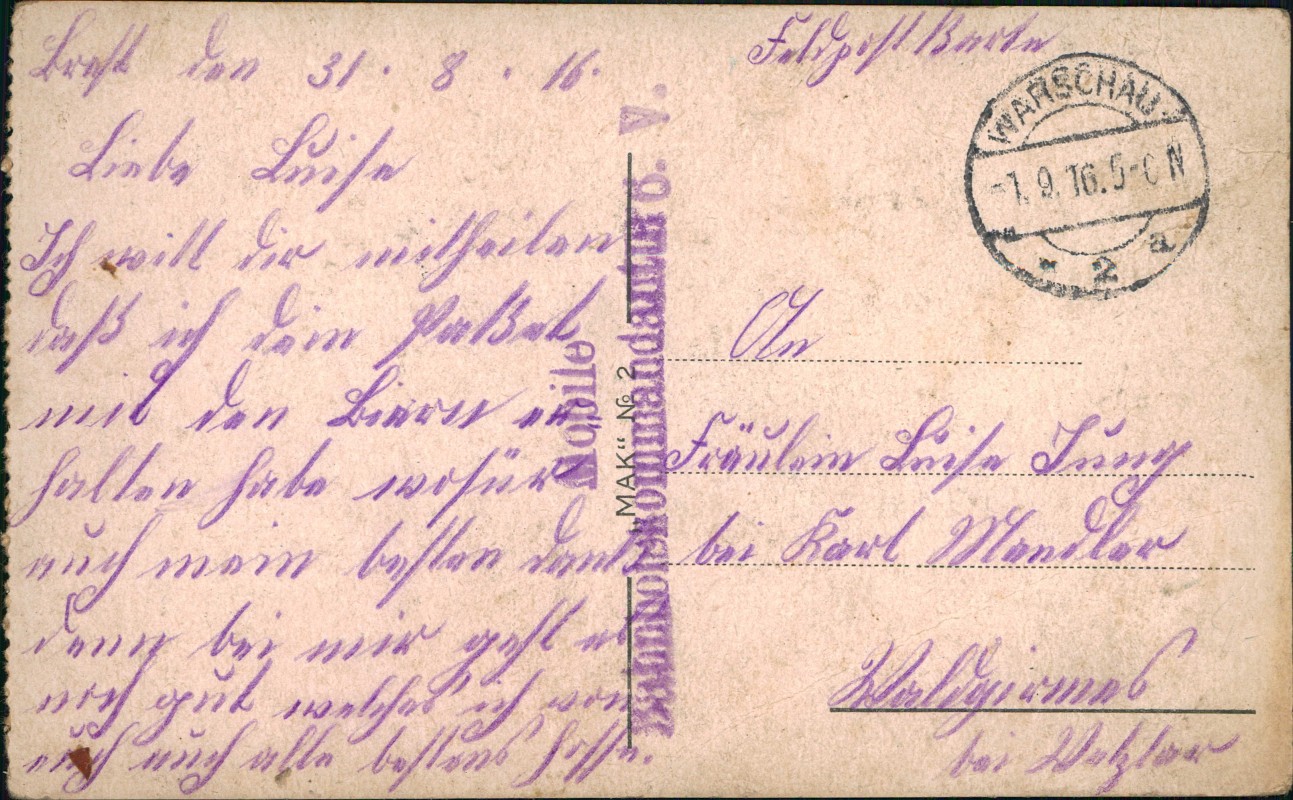 Brest den 31. 8. 16.
Liebe Luise
Ich will dir mitheilen
daß ich dein Packet
mit den Biern er
halten habe wofür
auch mein besten Dank
denn bei mir geht es
noch gut welches ich von
euch auch alle bestens hoffe.
Feldpost Karte
WARSCHAU
-1.9.16.5-6 N
* 2 a
Mobile
Bahnhofskommandantur 6. V.
"MAK" № 2
An
Fräulein Luise Jung
bei Karl Mandler
Waldgirmes
bei Wetzlar